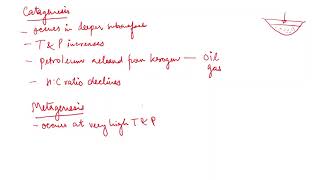 Catagenesis
- occurs in deeper subsurface
- T & P increases
- petroleum released from kerogen — oil
gas
- H:C ratio declines
Metagenesis
- occurs at very high T & P